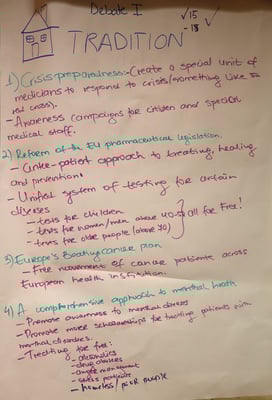 Debate I
✓15
-18
TRADITION
1) Crisis preparedness:- Create a special unit of
medicians to respond to crisis (something like the
red cross).
- Awareness campaigns for citizen and special
medical staff.
2) Reform of the EU pharmaceutical legislation.
- patient approach to treating, healing
and prevention
- Unified system of testing for certain
diseases
- tests for children
- tests for women/men above 40
- tests for older people (above 40)
all for Free!
3) Europe's Beating cancer plan
- Free movement of cancer patients across
European health institution.
4) A comprehensive approach to mental health
- Promote awareness to mental diseases
- Promote more scholarships for treating patients with
mental disorders.
- Treating for free:
- alcoholics
- drug abusers
- anger management
- homeless/poor people